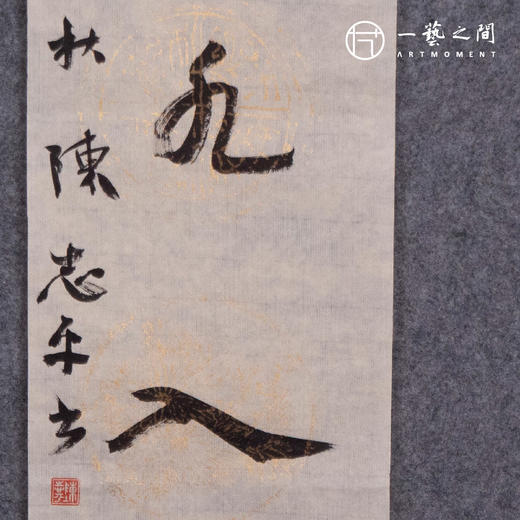 一藝之間
ARTMOMENT
九入
秋陳志平书